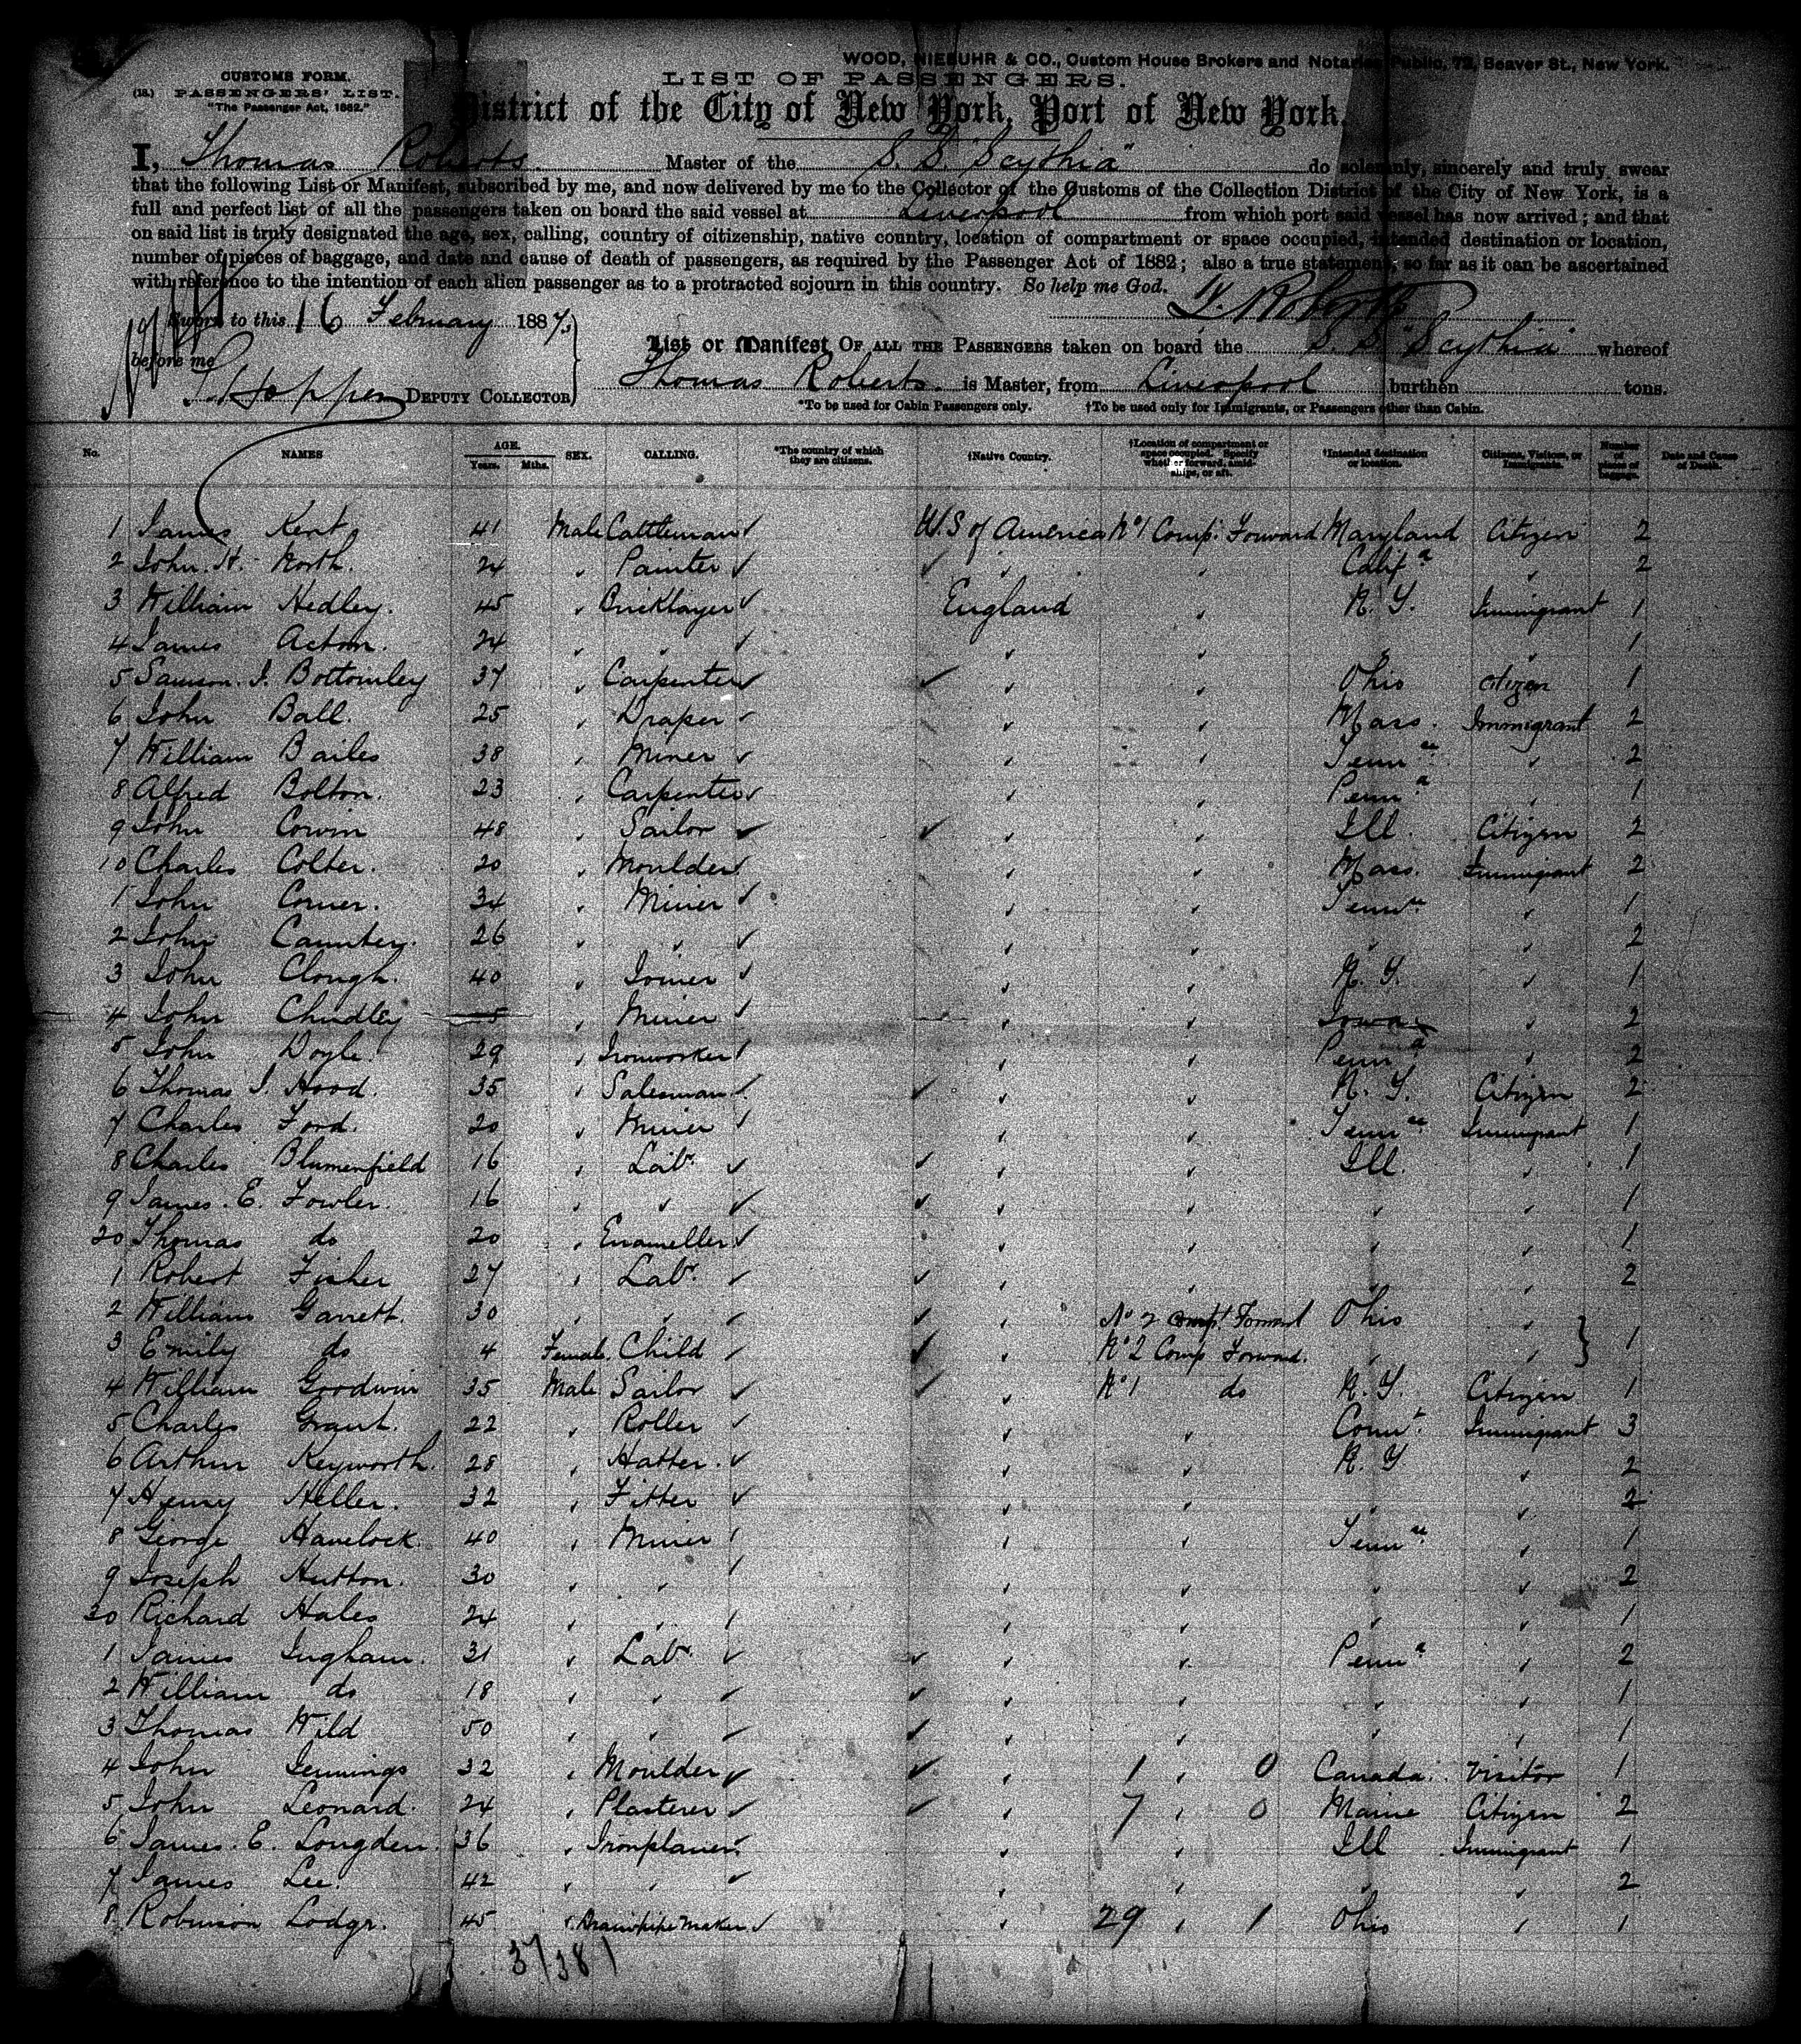 WOOD, NIEBUHR & CO., Custom House Brokers and Notaries Public, 72, Beaver St., New York.
CUSTOMS FORM.
(18.) PASSENGERS' LIST.
"The Passenger Act, 1882."
LIST OF PASSENGERS.
District of the City of New York, Port of New York.
I, Thomas Roberts. Master of the S. S. "Scythia" do solemnly, sincerely and truly swear
that the following List or Manifest, subscribed by me, and now delivered by me to the Collector of the Customs of the Collection District of the City of New York, is a
full and perfect list of all the passengers taken on board the said vessel at Liverpool from which port said vessel has now arrived; and that
on said list is truly designated the age, sex, calling, country of citizenship, native country, location of compartment or space occupied, intended destination or location,
number of pieces of baggage, and date and cause of death of passengers, as required by the Passenger Act of 1882; also a true statement, so far as it can be ascertained
with reference to the intention of each alien passenger as to a protracted sojourn in this country. So help me God.
T. Roberts
Sworn to this 16 February 1887.
before me
Hopper DEPUTY COLLECTOR
List or Manifest OF ALL THE PASSENGERS taken on board the S. S. "Scythia" whereof
Thomas Roberts. is Master, from Liverpool burthen tons.
*To be used for Cabin Passengers only. †To be used only for Immigrants, or Passengers other than Cabin.
No. NAMES AGE. Years. Mths. SEX. CALLING. *The country of which they are citizens. †Native Country. †Location of compartment or space occupied. Specify whether forward, amidships, or aft. †Intended destination or location. Citizens, Visitors, or Immigrants. Number of pieces of baggage. Date and Cause of Death.
1 James Kent 41 Male Cattleman ✓ U.S of America No 1 Comp: Forward Maryland Citizen 2
2 John. H. North. 24 " Painter ✓ " " Calif a " 2
3 William Hedley. 45 " Bricklayer ✓ England " N. Y. Immigrant 1
4 James Acton. 24 " " ✓ " " " " 1
5 Samson. J. Bottomley 37 " Carpenter ✓ " " Ohio citizen 1
6 John Ball. 25 " Draper ✓ " " Mass. Immigrant 2
7 William Bailes 38 " Miner ✓ " " Tenn ee " 2
8 Alfred Bolton. 23 " Carpenter ✓ " " Penn a " 1
9 John Cowin 48 " Sailor ✓ " " Ill. Citizen 2
10 Charles Colter. 20 " Moulder ✓ " " Mass. Immigrant 2
1 John Corner. 34 " Miner ✓ " " Tenn ee " 1
2 John Cauntey. 26 " " ✓ " " " " 2
3 John Clough. 40 " Joiner ✓ " " N. Y. " 1
4 John Chudley " Miner ✓ " " Iowa " 2
5 John Doyle. 29 " Ironworker ✓ " " Penn a " 2
6 Thomas J. Hood. 35 " Salesman ✓ " " N. Y. Citizen 2
7 Charles Ford. 20 " Miner ✓ " " Tenn ee Immigrant 1
8 Charles Blumenfield 16 " Labr. ✓ " " Ill. " 1
9 James. E. Fowler. 16 " " ✓ " " " " 1
20 Thomas do 20 " Enameller ✓ " " " " 1
1 Robert Fisher 27 " Labr. ✓ " " " " 2
2 William Garrett. 30 " " ✓ " No 2 compt. Forward Ohio "
3 Emily do 4 Female. Child ✓ " No 2 Comp Forward. " " } 1
4 William Goodwin 35 Male Sailor ✓ " No 1 do N. Y. Citizen 1
5 Charles Grant. 22 " Roller ✓ " " Connt. Immigrant 3
6 Arthur Keyworth. 28 " Hatter. ✓ " " N. Y " 2
7 Henry Heller. 32 " Fitter ✓ " " " " 2
8 George Havelock 40 " Miner ✓ " " Tenn ee " 1
9 Joseph Hutton. 30 " " ✓ " " " " 2
30 Richard Hales 24 " " ✓ " " " " 1
1 James Ingham. 31 " Labr. ✓ " " Penn a " 2
2 William do 18 " " ✓ " " " " 1
3 Thomas Wild 50 " " ✓ " " " " 1
4 John Jennings 32 " Moulder ✓ " 1 " 0 Canada. Visitor 1
5 John Leonard. 24 " Plasterer ✓ " 7 " 0 Maine Citizen 2
6 James. E. Longden. 36 " Ironplaner ✓ " " Ill Immigrant 1
7 James Lee. 42 " " ✓ " " " " 2
8 Robinson Lodgr. 45 " Drainpipe Maker ✓ " 29 " 1 Ohio " 1
37 38 1